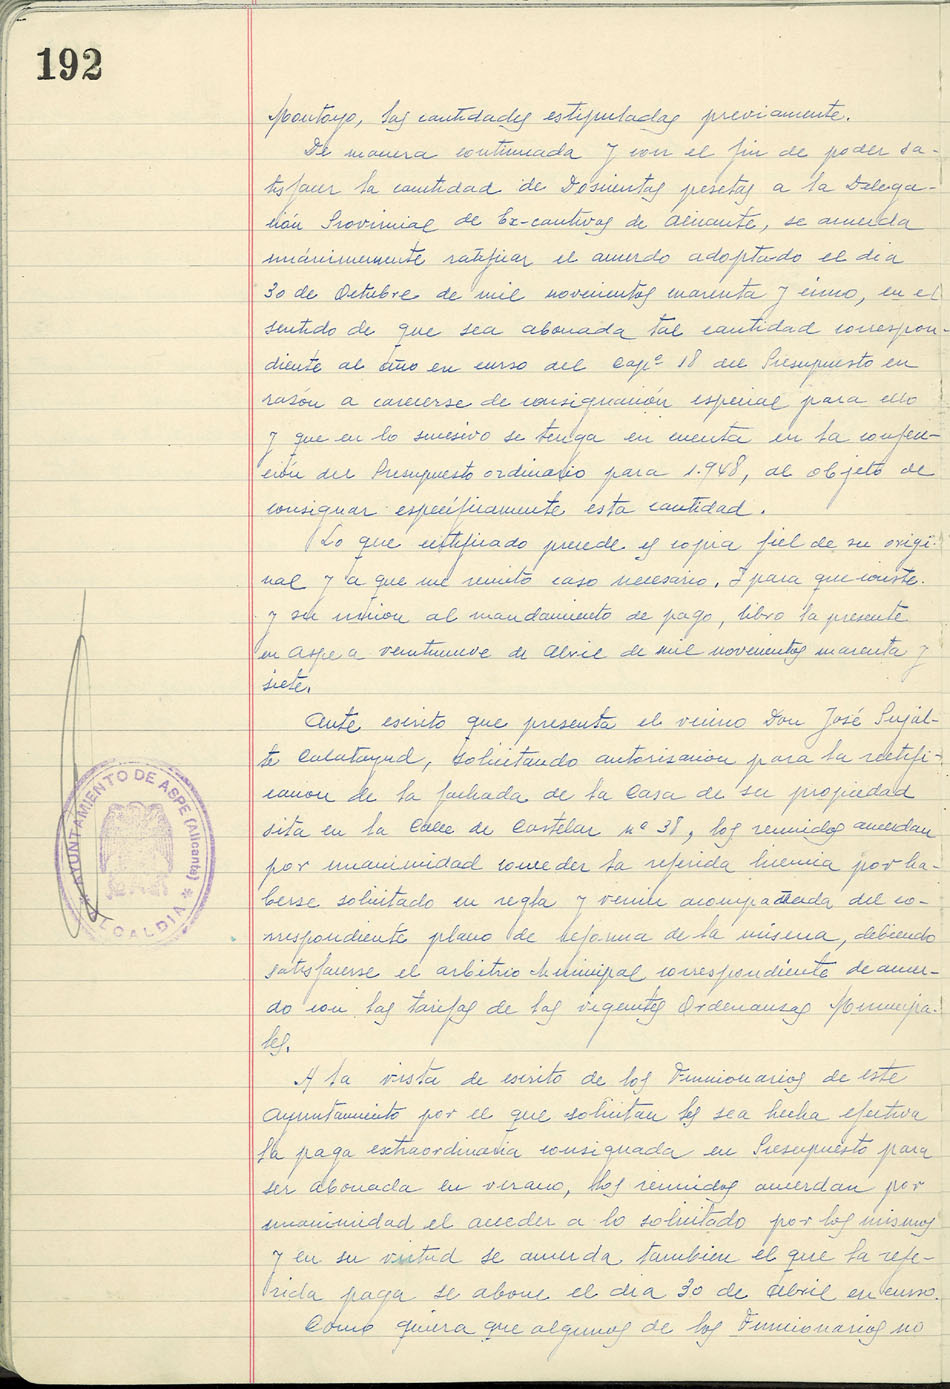 192
Montoyo, las cantidades estipuladas previamente.
De manera continuada y con el fin de poder sa-
tisfacer la cantidad de Doscientas pesetas a la Delega-
ción Provincial de Ex-cautivos de Alicante, se acuerda
unánimemente ratificar el acuerdo adoptado el dia
30 de Octubre de mil novecientos cuarenta y cinco, en el
sentido de que sea abonada tal cantidad correspon-
diente al año en curso del Capº 18 del Presupuesto en
razón a carecerse de consignación especial para ello
y que en lo sucesivo se tenga en cuenta en la confec-
ción del Presupuesto ordinario para 1.948, al objeto de
consignar específicamente esta cantidad.
Lo que certificado precede es copia fiel de su origi-
nal y a que me remito caso necesario. Y para que conste
y su unión al mandamiento de pago, libro la presente
en Aspe a veintinueve de Abril de mil novecientos cuarenta y
siete.
Ante escrito que presenta el vecino Don José Pujal-
te Calatayud, solicitando autorización para la rectifi-
cación de la fachada de la Casa de su propiedad
sita en la Calle de Castelar nº 38, los reunidos acuerdan
por unanimidad conceder la referida licencia por ha-
berse solicitado en regla y venir acompañada del co-
rrespondiente plano de reforma de la misma, debiendo
satisfacerse el arbitrio Municipal correspondiente de acuer-
do con las tarifas de las vigentes Ordenanzas Municipa-
les.
A la vista de escrito de los Funcionarios de este
Ayuntamiento por el que solicitan les sea hecha efectiva
la paga extraordinaria consignada en Presupuesto para
ser abonada en verano, los reunidos acuerdan por
unanimidad el acceder a lo solicitado por los mismos
y en su virtud se acuerda tambien el que la refe-
rida paga se abone el dia 30 de Abril en curso.
Como quiera que algunos de los Funcionarios no
AYUNTAMIENTO DE ASPE (Alicante)
* ALCALDIA *